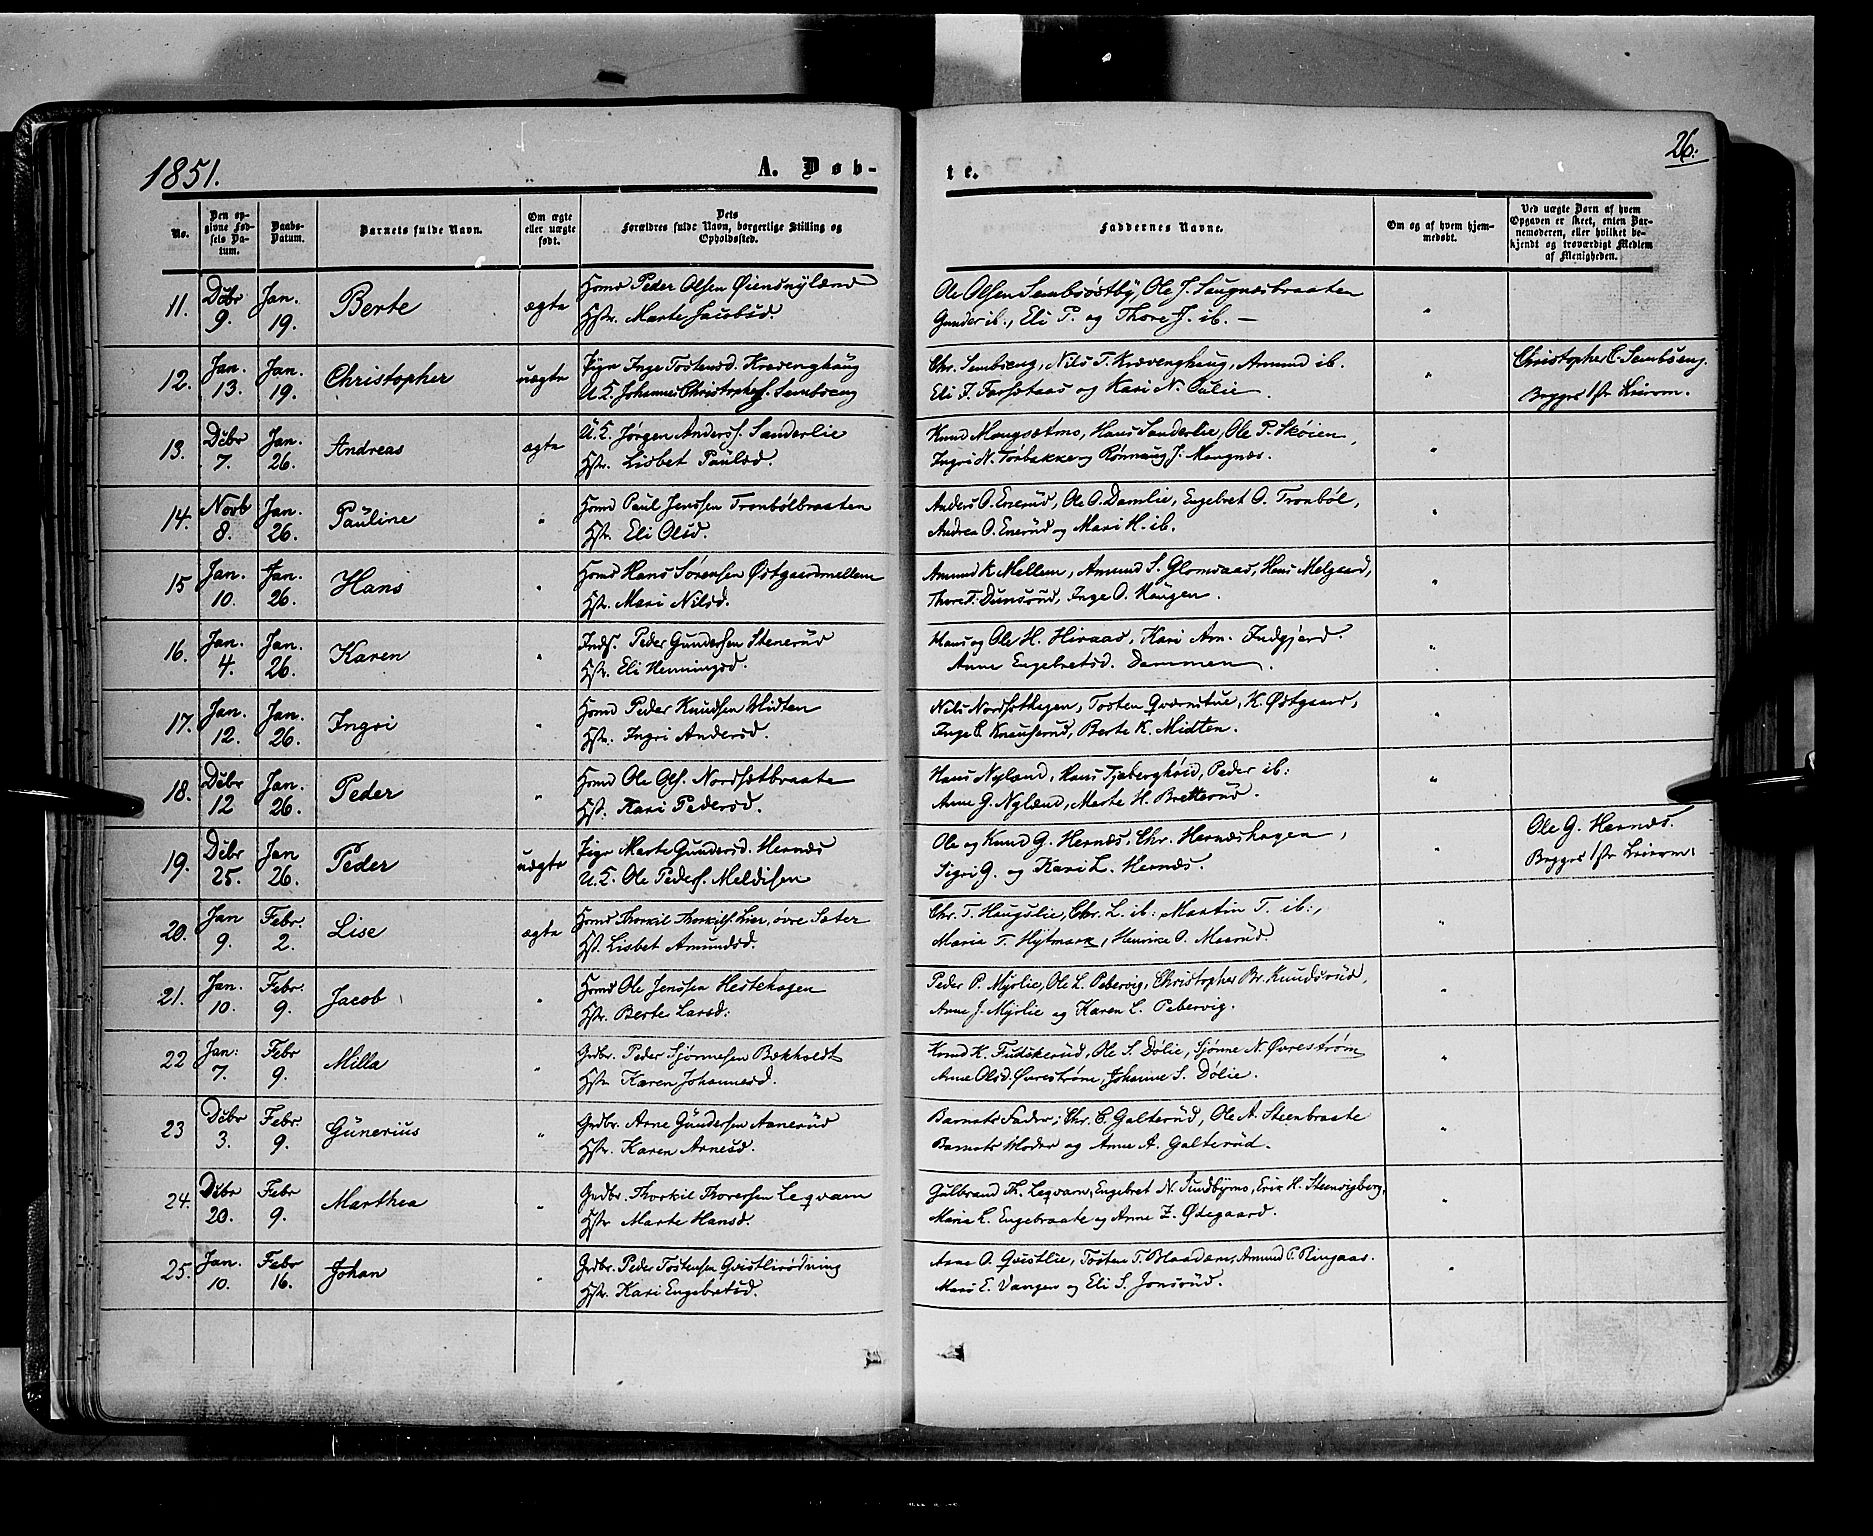 1851.
A. Døb-
te.
26.
No.
Den op-
givne Fød-
sels Da-
tum.
Daabs-
Datum.
Barnets fulde Navn.
Om ægte
eller uægte
født.
Dets
Forældres fulde Navn, borgerlige Stilling og
Opholdssted.
Faddernes Navne.
Om og af hvem hjem-
medøbt.
Ved uægte Børn af hvem
Opgaven er skeet, enten Bar-
nemoderen, eller hvilket be-
kjendt og troværdigt Medlem
af Menigheden.
11. Dcbr 9. Jan. 19. Berte ægte
Hsmd Peder Olsen
Hstr. Marte Jacobsd.
Ole Olsen Sembsøstby, Ole J. Saugnæsbraaten
Gunder ib., Eli P. og Thore J. ib. —
12. Jan. 13. Jan. 19. Christopher uægte
Pige Inge Tostensd. Kvævenghaug
U.K. Johannes Christophers. Sembseng
Chr. Sembseng, Nils T. Kvævenghaug, Amund ib.
Eli J. og Kari N.
Christopher C. Sembseng.
Begges 1ste Leierm.
13. Dcbr 7. Jan. 26. Andreas ægte
U.K. Jørgen Anders. Sanderlie
Hstr. Lisbet Paulsd.
Knud Mangsætmo, Hans Sanderlie, Ole P. Skøien,
Ingri N. Torbakken og Rønnaug J. Mangnæs.
14. Novb 8. Jan. 26. Pauline "
Hsmd Paul Jenssen Tronbølbraaten
Hstr. Eli Olsd.
Anders O. Enerud, Ole O. Damlie, Engebret O. Tronbøl,
Andrea O. Enerud og Mari H. ib.
15 Jan. 10. Jan. 26. Hans "
Hsmd Hans Sørensen Østgaardmellem
Hstr. Mari Nilsd.
Amund K. Mellem, Amund S. Glomsaas, Hans Melgaard,
Thore T. Dunsrud, Inge O. Haugen.
16. Jan. 4. Jan. 26. Karen "
Inds. Peder Gundersen Stenerud
Hstr. Eli Henningsd.
Hans og Ole H. Hiraas, Kari Am. Indgjerd.
Anne Engebretsd. Dammen.
17. Jan. 12. Jan. 26. Ingri "
Hsmd Peder Knudsen Midten
Hstr. Ingri Andersd.
Nils Nordsethagen, Tosten Qværnstue, K. Østgaard,
Inge C. Knauserud, Berte K. Midten.
18. Dcbr 12 Jan. 26. Peder "
Hsmd Ole Ols. Nordsætbraate
Hstr. Kari Pedersd.
Hans Nyland, Hans Tjaberghøid, Peder ib:
Anne G. Nyland, Marte H. Bretterud.
19. Dcbr 25. Jan 26. Peder uægte
Pige Marte Gundersd. Hernæs
U.K. Ole Peders. Meldisen
Ole og Knud G. Hernæs, Chr. Hernæshagen,
Sigri G. og Kari L. Hernæs.
Ole G. Hernæs.
Begges 1ste Leierm:
20. Jan 9. Febr. 2. Lise ægte
Hsmd Thorkil Thorkils. Lier, øvre Sæter
Hst. Lisbet Amundsd.
Chr. T. Haugslie, Chr. L. ib: Martin T. ib:,
Maria T. Hytmark, Henrike O. Moerud.
21. Jan. 10. Febr. 9. Jacob "
Hsmd Ole Jenssen Hestehagen
Hstr. Berte Larsd:
Peder P. Myrlie, Ole L. Pebervig, Christopher Br. Knudsrud,
Anne J. Myrlie og Karen L. Pebervig.
22 Jan: 7. Febr 9. Milla "
Grdbr. Peder Sjønnesen Bækholdt
Hstr. Karen Johannesd.
Knud K. Fuskerud, Ole S. Dølie, Sjønne N. Øvrestrøm
Anne Olsd. Øvrestrøm, Johanne S. Dølie.
23 Dcbr 3. Febr 9. Gunerius "
Grdbr. Arne Gundersen Aanerud
Hstr. Karen Arnesd.
Barnets Fader; Chr. C. Galterud, Ole A. Steenbraate
Barnets Moder og Anne A. Galterud.
24. Dcbr 20. Febr 9. Marthea "
Grdbr. Thorkil Thoresen Leqvam
Hstr. Marte Hansd.
Gulbrand Th. Leqvam, Engebret N. Sundbymo, Erik H. Steenvigberg,
Maria L. Engebraate og Anne Z. Ødegaard.
25. Jan. 10. Febr 16. Johan "
Grdbr. Peder Tostensen Qvistlirødning
Hstr. Kari Engebretsd.
Arne O. Qvistlie, Tosten T. Blaadam, Amund P. Ringaas.
Mari E. Vangen og Eli S. Jonsrud.